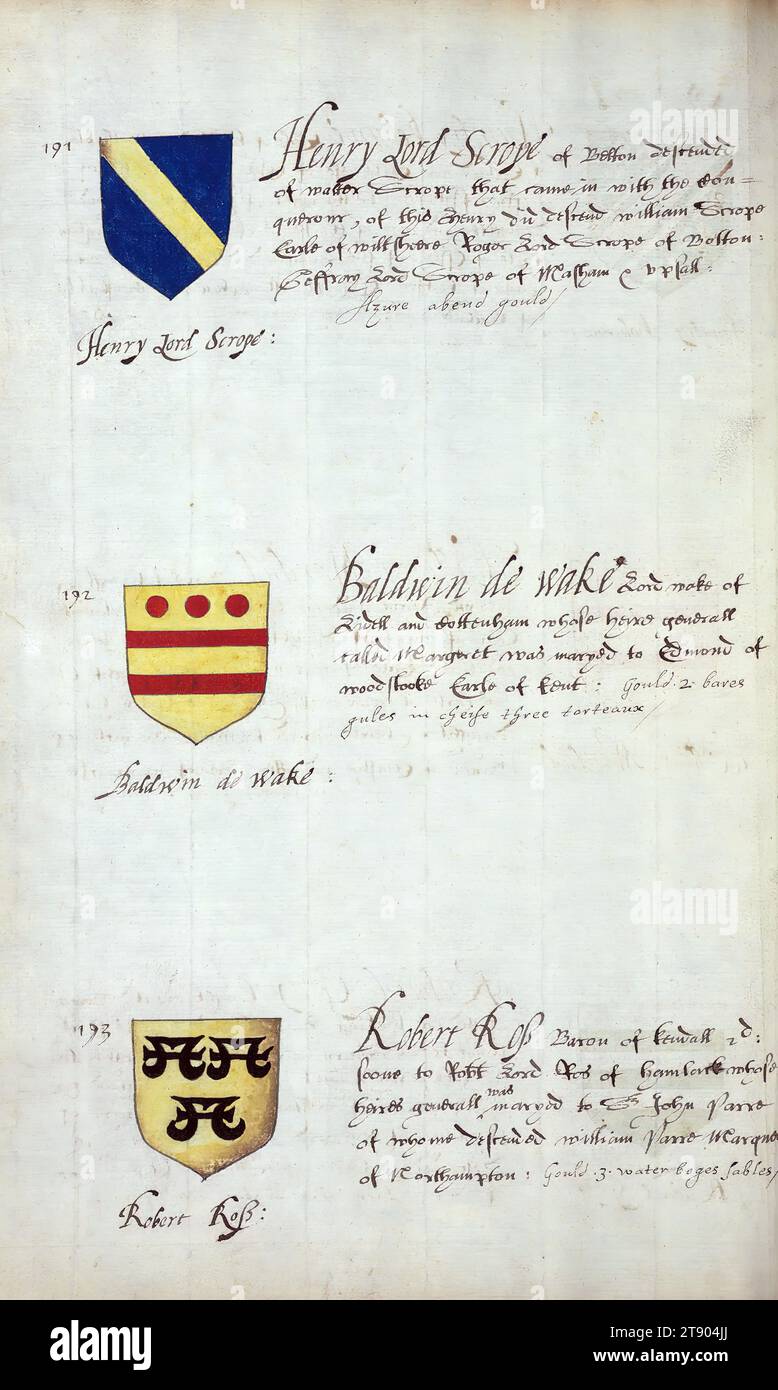 191
Henry Lord Scrope of Bolton descended
of walter Scrope that came in with the Con=
querour, of this Henry did descend william Scrope
Earle of wiltsheere Roger Lord Scrope of Bolton:
Geffray Lord Scrope of Masham & vpsall:
Azure abend gould/
Henry Lord Scrope:
192
Baldwin de wake Lord wake of
Lidell and Cottenham whose heire generall
called Margeret was maryed to Edmond of
woodstooke Earle of Kent: Gould .2. bares
gules in cheife three torteaux/
Baldwin de wake:
193
Robert Roß Baron of Kendall 2d:
soone to Robt Lord Ros of Hamlack whose
heires generall was maryed to Sr John Parre
of whome descended william Parre Marque
of Northampton: Gould .3. water boges sables/
Robert Roß:
alamy
alamy
a
a
a
a
alamy
Image ID: 2T904JJ
www.alamy.com